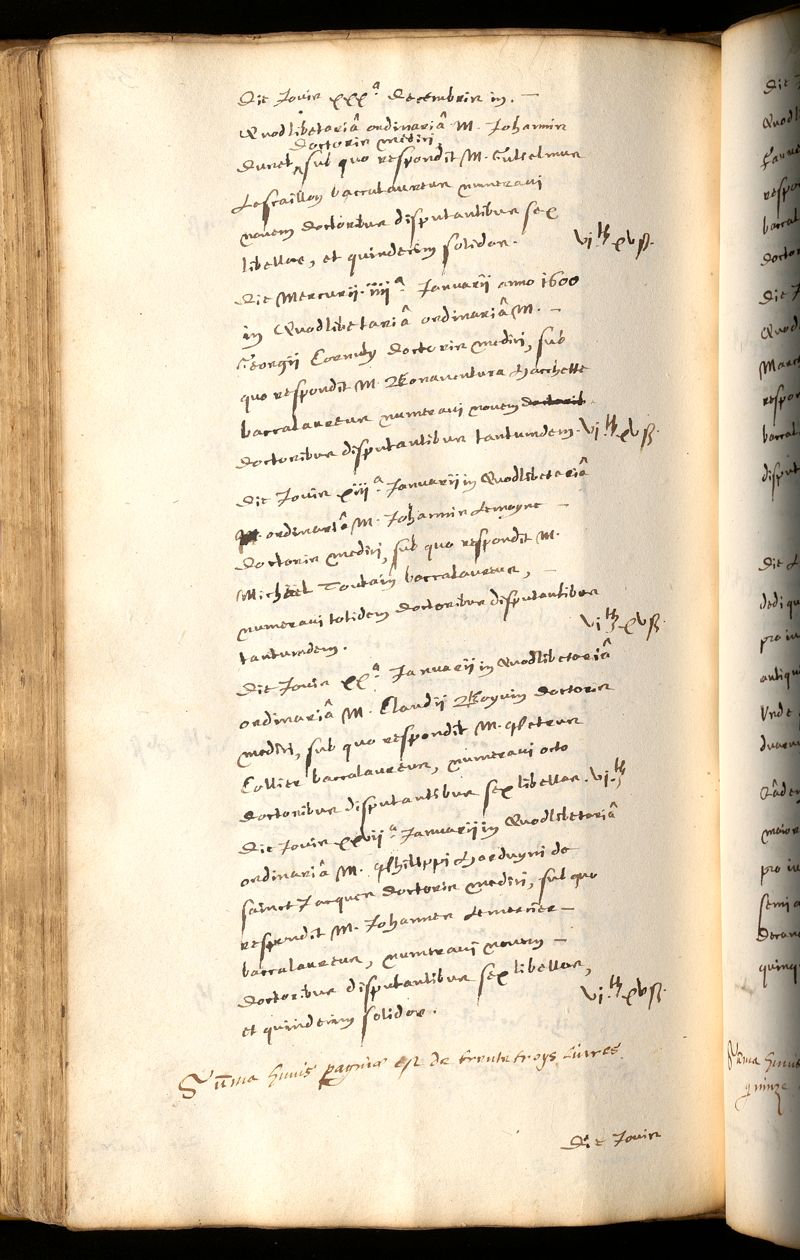 Die Jovis xxx^a decembris in. —
Quodlibetariâ ordinariâ M. Johannis
Doctoris medici,
Duret, sub quo respondit M. Gulielmus
Lescaillon baccalaureus numeravi
novem doctoribus disputantibus sex
libellas, et quindecim solidos. vi.^lb xvß.
Die Mercurii. iiii^a Januarii anno 1600
in Quodlibetariâ ordinariâ M. —
Georgii Cornuty doctoris medici, sub
quo respondit M. Bonaventura Hacchette
baccalaureus numeravi novem
doctoribus disputantibus tantumdem. vi.^lb xvß.
Die Jovis xiii^a Januarii in Quodlibetariâ
ordinariâ M. Johannis Lemoyne —
doctoris medici, sub quo respondit M.
Michael Toutain baccalaureus, —
numeravi totidem doctoribus disputantibus
tantumdem. vi.^lb xvß.
Die Jovis xx^a Januarii in Quodlibetariâ
ordinariâ M. Claudii Roguin doctoris
medici, sub quo respondit M. Petrus
Collier baccalaureus, numeravi octo
doctoribus disputantibus sex libellas. vi.^lb
Die Jovis xxvii^a Januarii in Quodlibetariâ
ordinariâ M. Philippi Harduyni de
sainct Jacques doctoris medici, sub quo
respondit M. Johannes Lemercier —
baccalaureus, numeravi novem —
doctoribus disputantibus sex libellas,
et quindecim solidos. vi.^lb xvß.
Sūma huius paginæ est de trente troys livres
Die Jovis